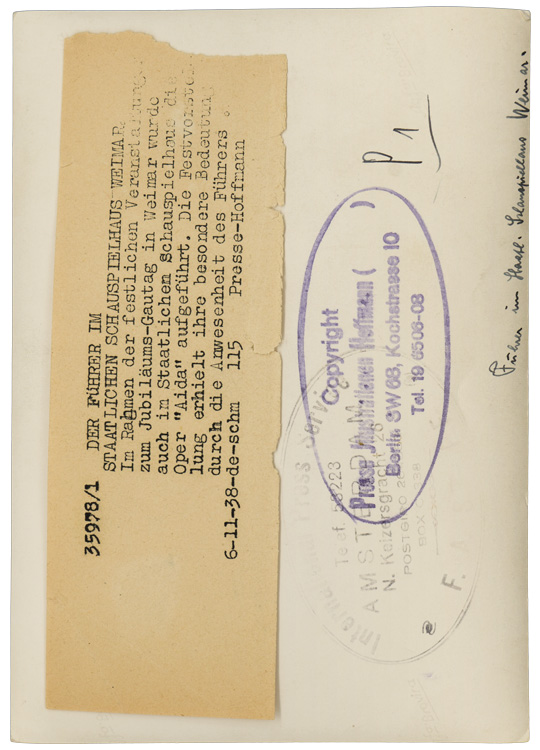 35978/1 DER FÜHRER IM
STAATLICHEN SCHAUSPIELHAUS WEIMAR.
In Rahmen der festlichen Veranstaltung
zum Jubiläums-Gautag in Weimar wurde
auch im Staatlichen Schauspielhaus die
Oper "Aida" aufgeführt. Die Festvorstel-
lung erhielt ihre besondere Bedeutung
durch die Anwesenheit des Führers.
6-11-38-de-schm 115 Presse-Hoffmann
Copyright
Presse Illustrationen Hoffmann ( )
Berlin SW 68, Kochstrasse 10
Tel. 19 6506-08
International Press Service
Telef. 58223
AMSTERDAM
N. Keizersgracht
POSTGIRO
F.
P 1
Führer im Staatl. Schauspielhaus Weimar.